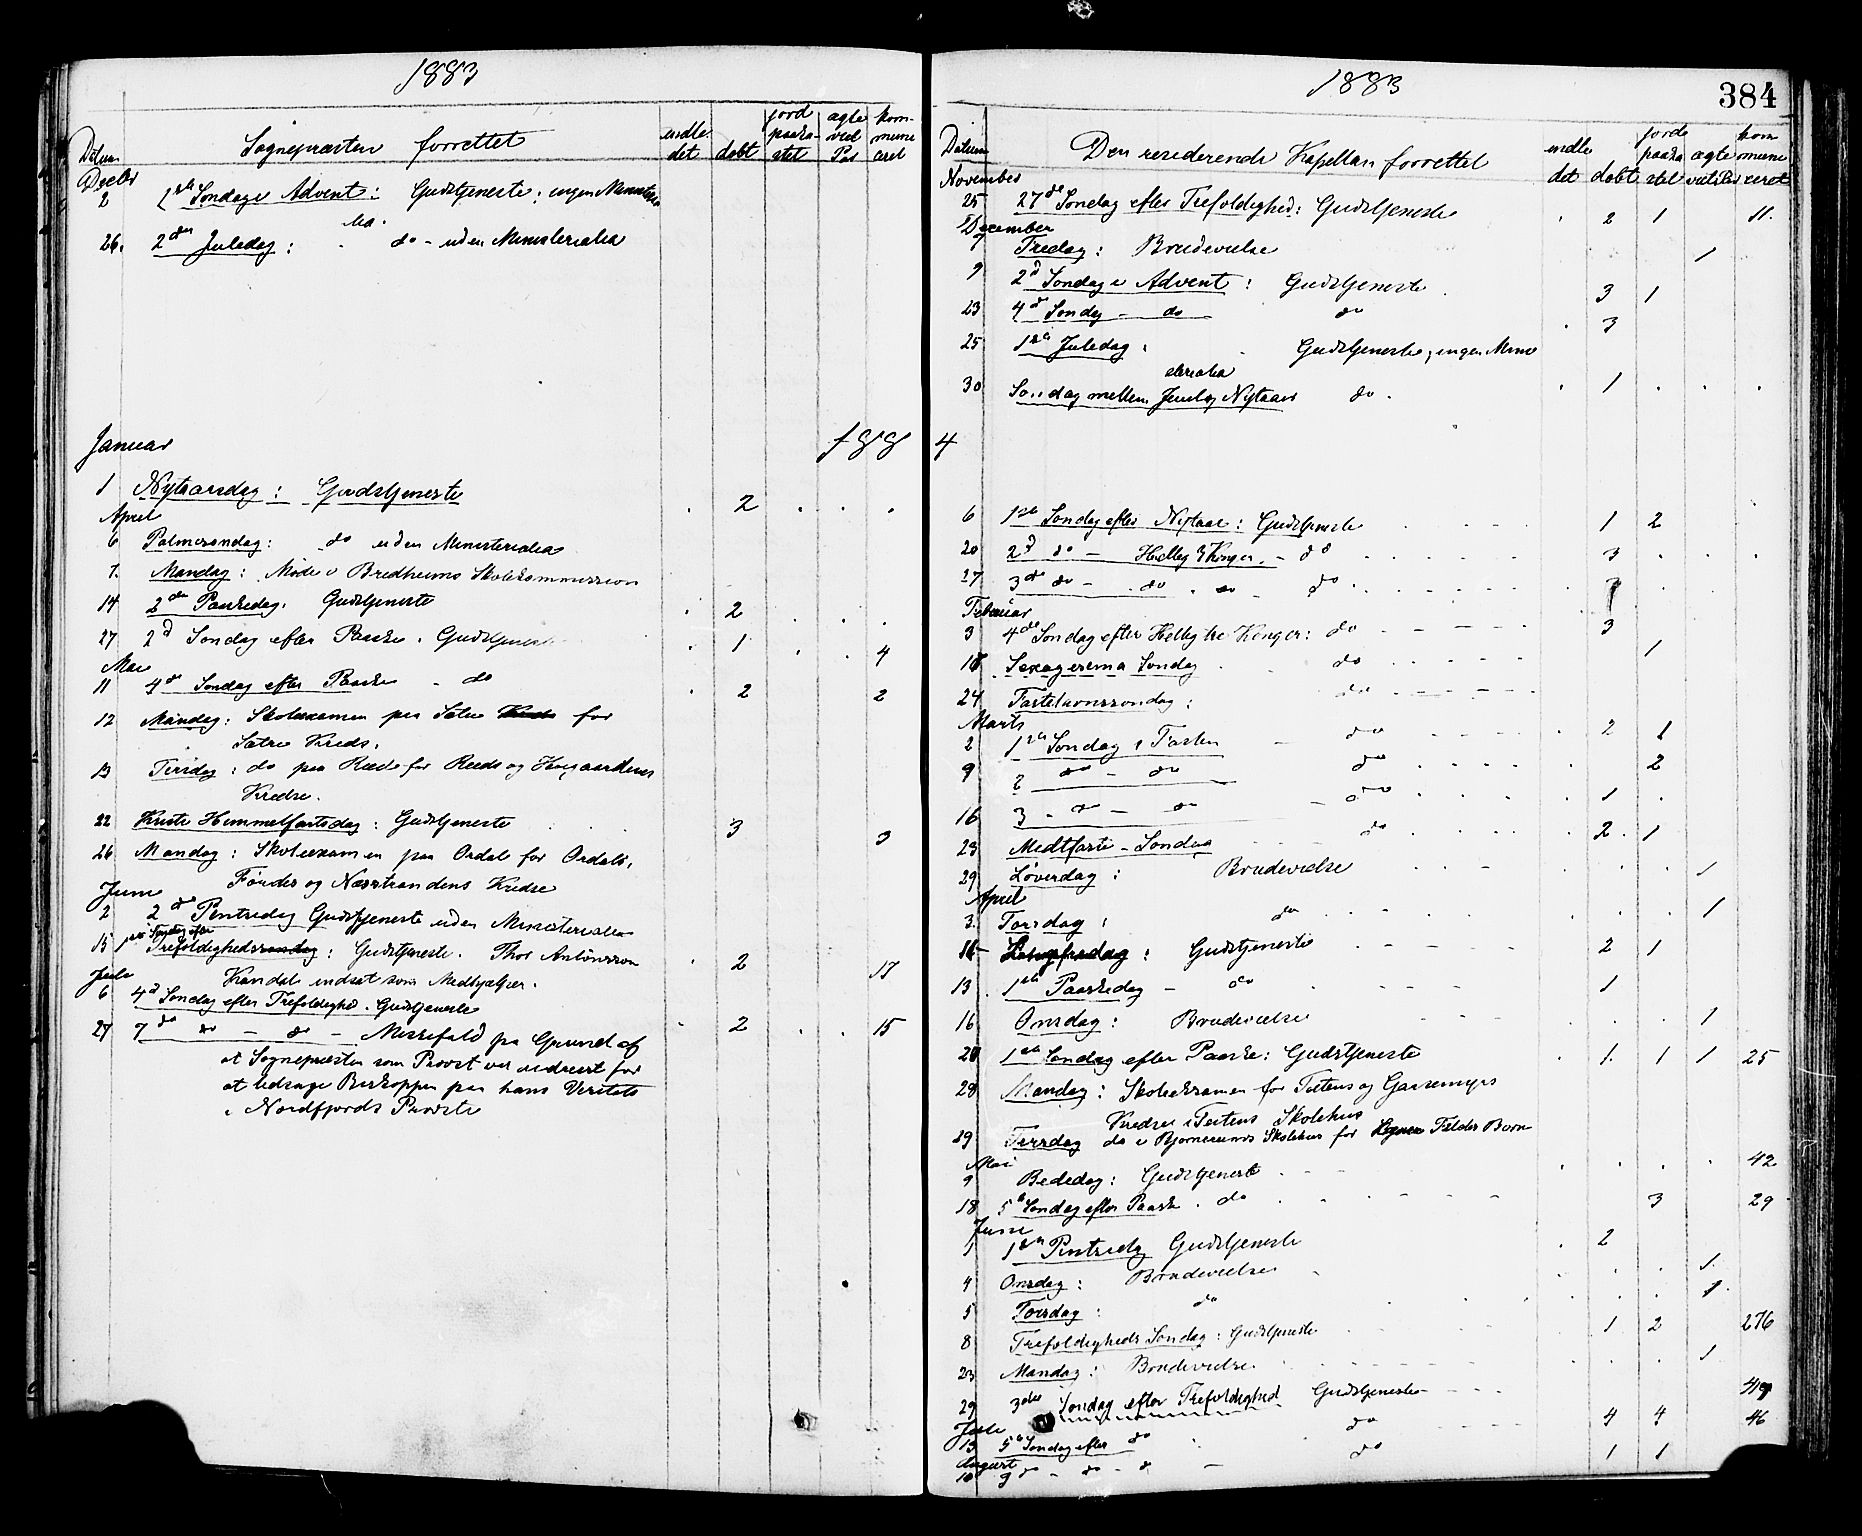 1883
Datum
Sognepræsten forrettet
indledet
døbt
jordpaakastet
ægteviet Par
kommuniceret
Decbr
2 1ste Søndag i Advent: Gudstjeneste; ingen Ministerialia
26. 2den Juledag: do - uden Ministerialia
Januar 188
1 Nytaarsdag: Gudstjeneste 2
April
6 Palmesøndag: do uden Ministerialia
7. Mandag: Møde i Bredheims Skolekommission
14 2den Paaskedag. Gudstjeneste 2
27 2d Søndag efter Paaske. Gudstjeneste 1 4
Mai
11 4de Søndag efter Paaske - do 2 2
12 Mandag: Skolexamen paa Sætre for
Sætre Kreds.
13 Tirsdag: do paa Reed for Reeds og
Kredse.
22 Kristi Himmelfartsdag: Gudstjeneste 3 3
26 Mandag: Skoleexamen paa Ordal for Ordals,
Førdes og Næsstrandens Kredse
Juni
2 2de Pintsedag Gudstjeneste uden Ministerialia
15 1ste Søndag efter Trefoldighedssøndag: Gudstjeneste. Thor Antonsson 2 17
Kandal indsat som Medhjælper.
Juli
6 4d Søndag efter Trefoldighed. Gudstjeneste
27 7de do - do - Messefald pa Grund af 2 15
at Sognepræsten som Provst var reist for
at ledsage Biskoppen paa hans Visitats
i Nordfjords Provsti
1883
384
Datum
Den residerende Kapellan forrettet
indledet
døbt
jordpaakastet
ægteviet Par
kommuniceret
November
25 27de Søndag efter Trefoldighed: Gudstjeneste 2 1 11.
December
7 Fredag: Brudevielse 1
9 2d Søndag i Advent: Gudstjeneste 3 1
23 4d Søndg - do do 3
25 1ste Juledag: Gudstjeneste, ingen Ministerialia
30 Søndag mellem Jul og Nytaar do. 1
4
6 1ste Søndag efter Nytaar: Gudstjeneste 1 2
20 2d do - Hellig 3 Konger. - do 3
27 3de do - do - do - do
Februar
3 4de Søndag efter Hellig tre Konger: do 3
Sexagesima Søndag do 1
24 Fastelavnssøndag: do
Marts
2 1ste Søndag i Fasten - do 2 1
9 2 do - do do 2
16 3 - do - do - do 1
23 Midtfaste-Søndag do 2 1
29 Løverdag: Brudevielse 1
April
3. Torsdag: do 1
Langfredag: Gudstjeneste 2 1
13 1ste Paaskedag - do 1
16 Onsdag: Brudevielse 1
20 1ste Søndag efter Paaske: Gudstjeneste 1 1 1 25
28 Mandag: Skoleexamen for Testens og Gaasemyrs
Kredse i Testens Skolehus
29 Tirsdag do i Bjørnesunds Skolehus for Felder Børn
Mai
9 Bededag: Gudstjeneste 42
18 5te Søndag efter Paaske. do 3 29
Juni
1 1ste Pintsedg Gudstjeneste 2
4 Onsdag: Brudevielse 1
5 Torsdag: do 1
8 Trefoldigheds Søndag: Gudstjeneste 1 2 276
23 Mandag: Brudevielse 1
29 3die Søndag efter Trefoldighed Gudstjeneste 49
Juli
13 5te Søndag efter do do 4 4 46
August
10 9 do - do - do - do 1 1